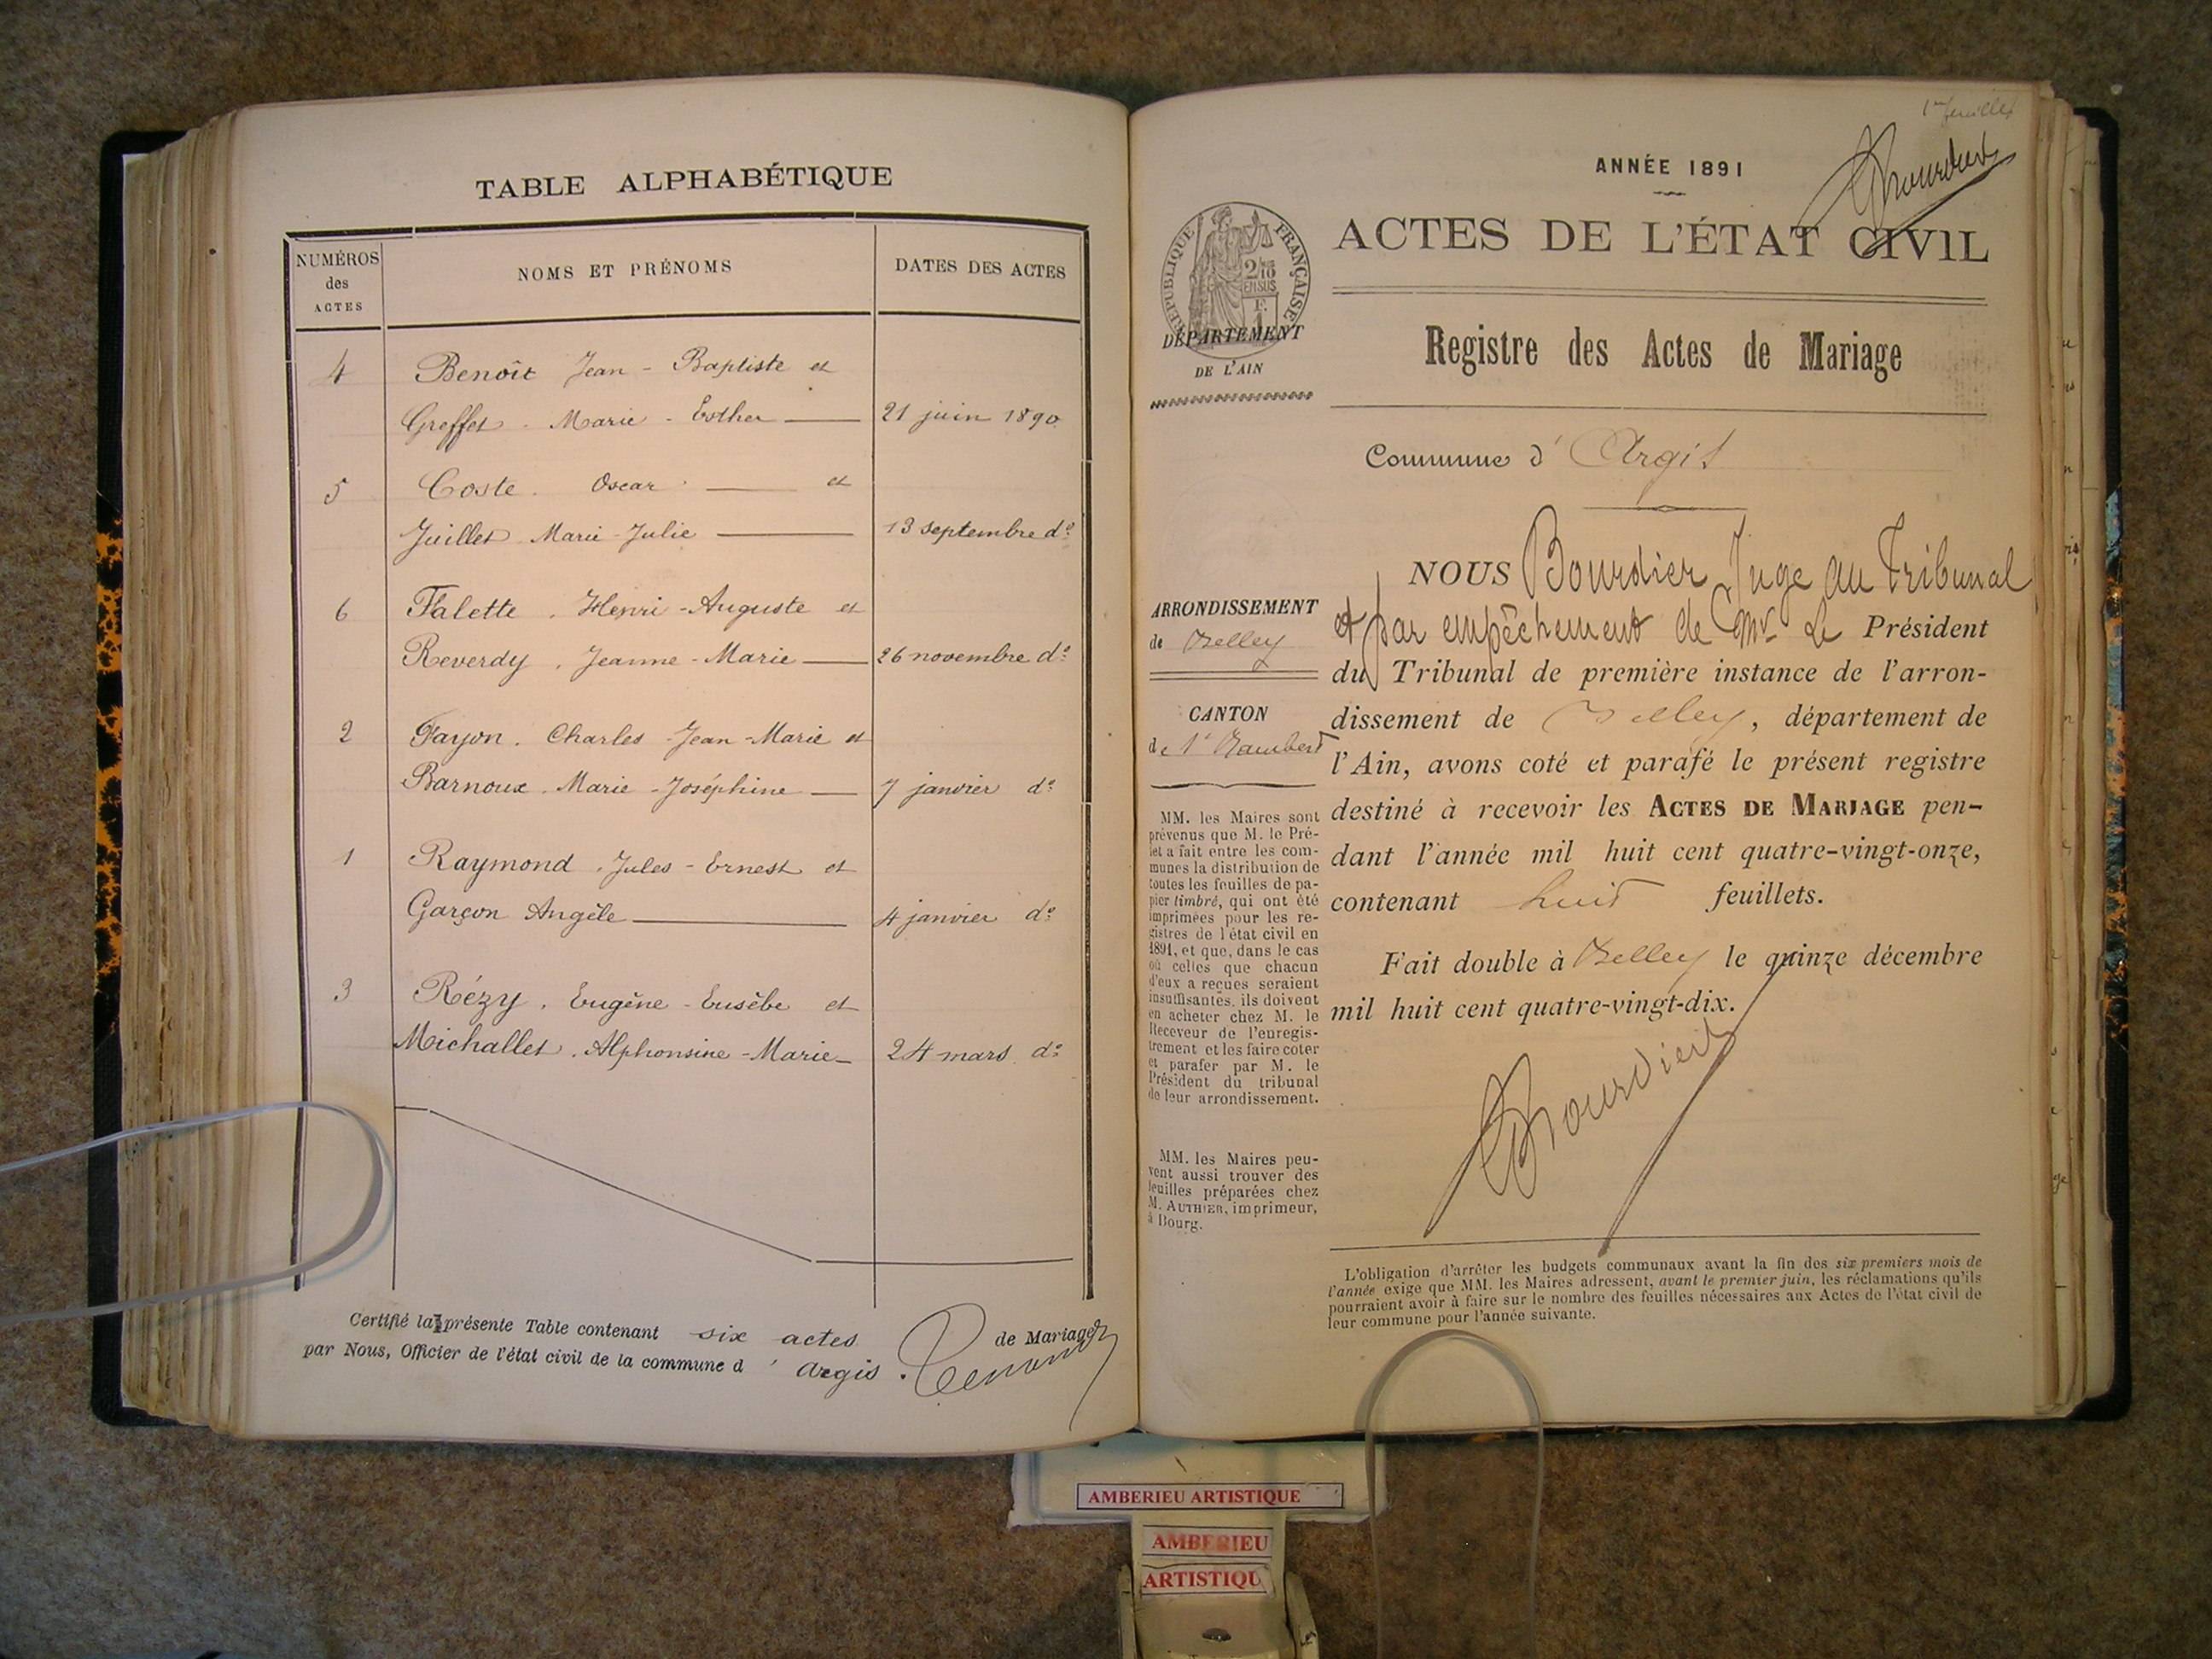 TABLE ALPHABÉTIQUE
NUMÉROS
des
ACTES
NOMS ET PRÉNOMS
DATES DES ACTES
4 Benoît Jean - Baptiste et
Greffet . Marie - Esther — 21 juin 1890
5 Coste . Oscar . — et
Juillet Marie Julie — 13 septembre do
6 Falette . Henri - Auguste et
Reverdy . Jeanne - Marie — 26 novembre do
2 Fayon . Charles - Jean - Marie et
Barnoux . Marie - Joséphine — 7 janvier do
1 Raymond . Jules - Ernest et
Garçon Angèle — 4 janvier do
3 Rézy . Eugène - Eusèbe et
Michallet . Alphonsine - Marie — 24 mars do
Certifié la présente Table contenant six actes de Mariage
par Nous, Officier de l'état civil de la commune d' Argis .
1er feuillet
Bourdier
ANNÉE 1891
ACTES DE L'ÉTAT CIVIL
RÉPUBLIQUE FRANÇAISE
DÉPARTEMENT
DE L'AIN
Registre des Actes de Mariage
Commune d' Argis
NOUS Bourdier Juge au Tribunal
et par empêchement de Mr Le Président
du Tribunal de première instance de l'arron-
dissement de Belley, département de
l'Ain, avons coté et parafé le présent registre
destiné à recevoir les ACTES DE MARIAGE pen-
dant l'année mil huit cent quatre-vingt-onze,
contenant huit feuillets.
Fait double à Belley le quinze décembre
mil huit cent quatre-vingt-dix.
Bourdier
ARRONDISSEMENT
de Belley
CANTON
de St Rambert
MM. les Maires sont
prévenus que M. le Pré-
fet a fait entre les com-
munes la distribution de
toutes les feuilles de pa-
pier timbré, qui ont été
imprimées pour les re-
gistres de l'état civil en
1891, et que, dans le cas
où celles que chacun
d'eux a reçues seraient
insuffisantes, ils doivent
en acheter chez M. le
Receveur de l'enregis-
trement et les faire coter
et parafer par M. le
Président du tribunal
de leur arrondissement.
MM. les Maires peu-
vent aussi trouver des
feuilles préparées chez
M. AUTHIER, imprimeur,
à Bourg.
L'obligation d'arrêter les budgets communaux avant la fin des six premiers mois de
l'année exige que MM. les Maires adressent, avant le premier juin, les réclamations qu'ils
pourraient avoir à faire sur le nombre des feuilles nécessaires aux Actes de l'état civil de
leur commune pour l'année suivante.
AMBERIEU ARTISTIQUE
AMBERIEU
ARTISTIQU